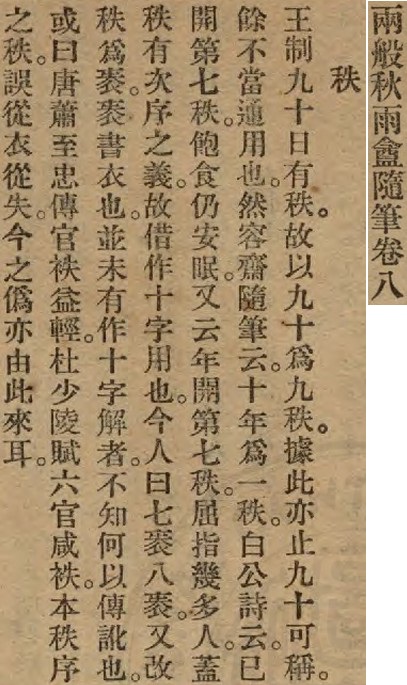 兩般秋雨盦隨筆卷八
秩
王制九十日有秩。故以九十爲九秩。據此亦止九十可稱。
餘不當通用也。然容齋隨筆云。十年爲一秩。白公詩云。已
開第七秩。飽食仍安眠。又云年開第七秩。屈指幾多人。蓋
秩有次序之義。故借作十字用也。今人曰七袠八袠。又改
秩爲袠。袠書衣也。並未有作十字解者。不知何以傳訛也。
或曰唐蕭至忠傳官袟益輕。杜少陵賦六官咸袟。本秩序
之秩。誤從衣從失。今之僞亦由此來耳。